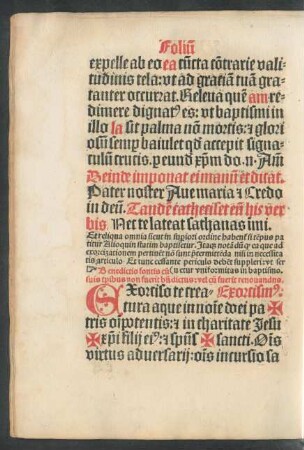 Foliū
expelle ab eo ea cūcta cōtrarie vali⸗
tudinis tela: vt ad gratiā tuā gra⸗
tanter occurrat. Releua quē am re⸗
dimere dignatꝰ es: vt baptismi in
illo la sit palma nō mortis: ⁊ glori
osū semꝑ baiulet qd accepit signa⸗
culū crucis. ꝑ eund xp̄m do. n. Am̄
Deinde imponat ei manū et dicat.
Pater noster Aue maria ⁊ Credo
in deū. Tandē cathesiset eū his ver
bis. Nec te lateat sathanas imi.
Et reliqua omnia sicut in
Alioquin statim baptisetur.
necessitatis articulo.
Benedictio fontis
Exorciso te crea⸗ Exortismꝰ:
tura aque in noīe dei pa ✠
tris oīpotentis: ⁊ in charitate Jesu
✠ xp̄i filij eiꝰ: ⁊ spūs ✠ sancti. Oīs
virtus aduersarij: oīs incursio sa